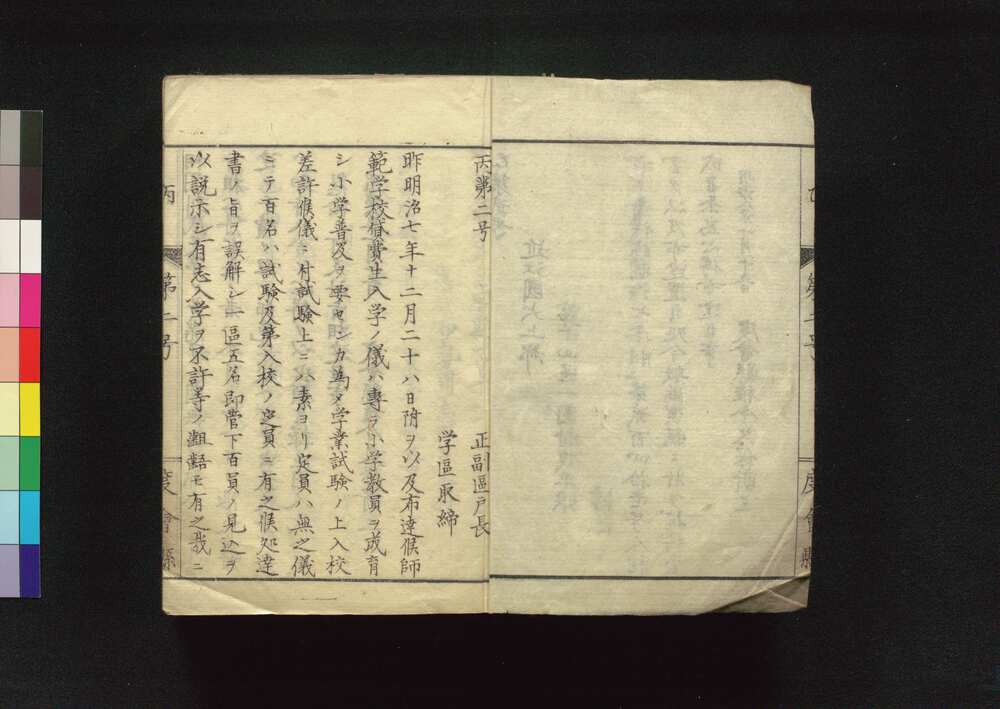 丙第二号
正副區戸長
学區取締
昨明治七年十二月二十八日附ヲ以及布達候師
範学校貸費生入学ノ儀ハ專ラ小学教員ヲ成育
シ小学普及ヲ要センカ為メ学業試験ノ上入校
差許候儀ニ付試験上ニハ素ヨリ定員ハ無之儀
ニテ百名ハ試験及第入校ノ定員ニ有之候処達
書ノ旨ヲ誤解シ一區五名即管下百員ノ見込ヲ
以説示シ有志入学ヲ不許等ノ齟齬モ有之哉ニ
丙 第二号
度會縣